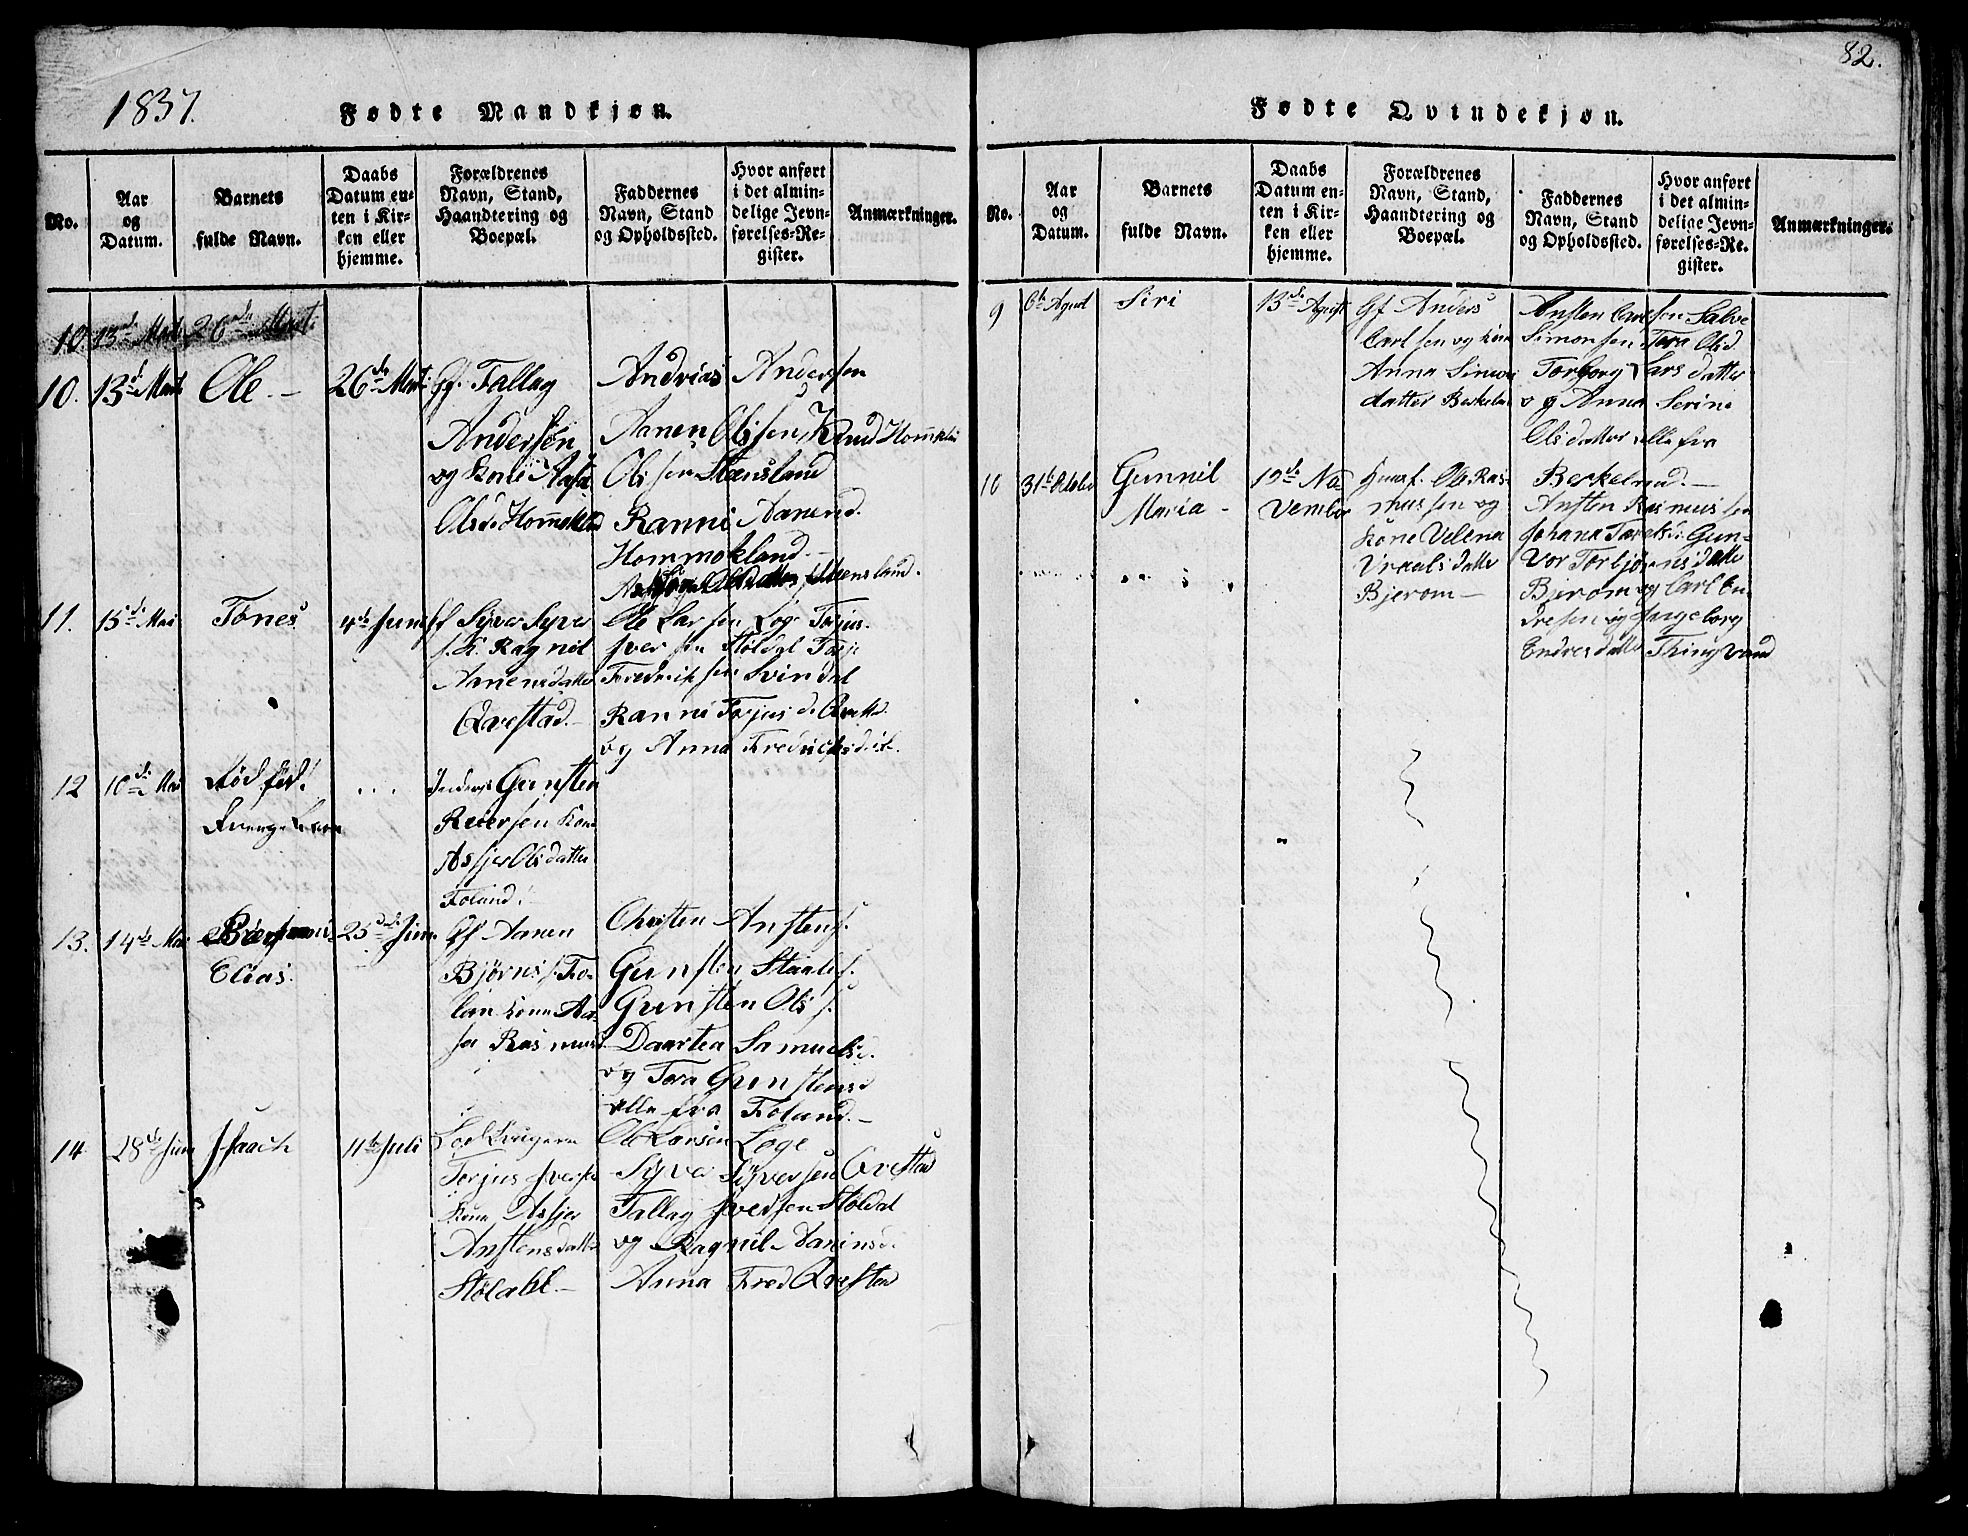 82.
1837.
Fødte Mandkjøn.
No.
Aar
og
Datum.
Barnets
fulde Navn.
Daabs
Datum en-
ten i Kir-
ken eller
hjemme.
Forældrenes
Navn, Stand,
Haandtering og
Boepæl.
Faddernes
Navn, Stand
og Opholdssted.
Hvor anført
i det almin-
delige Jevn-
førelses-Re-
gister.
Anmærkninger.
10. 13de Mart 26de Mart.
10. 13de Mart
Ole. —
26de Mart.
Gf. Tallag
Andersen
og Kone Aasa
Olsd. Hommekland
Andrias Andersen
Aanen Olssen, Knud
Olssen Stensland
Ranni Aanend.
Hommokland —
Olsdatter Steensland.
11. 15de Mai
Tønes
4de Juni
Gf Syver Syver
s. K. Ragnil
Aanensdatter
Qvestad. —
Ole Larsen Loge Torjus
Iversen Støldal Torje
Fredriksen Svindal
Ranni Torjusd. Qvestd.
og Anna Fredricksd.
12 10de Mai
Død fød.
...
Gunsten
Reiersen Kone
Asjer Olsdatter
Foland.
13. 14de Mai
Elias.
25de Juni
Gf Aanen
Bjørns s. Fo-
lan Kone Aa-
sa Rasmusd.
Christen Anstens.
Gunsten Staales.
Gunsten Ols s.
Daartea Samuelsd.
og Tora Gunstensd
alle fra Foland. —
14 28de Juni
Isaach
11te Juli
Torjus Iversen
Kone Asjer
Anstensdatter
Støldal —
Ole Larsen Loge
Syver Syversen Qvestad
Tallag Iversen Støldal
og Ragnil Aanensd.
Anna Fred Qvestad
Fødte Qvindekjøn.
No.
Aar
og
Datum.
Barnets
fulde Navn.
Daabs
Datum en-
ten i Kir-
ken eller
hjemme.
Forældrenes
Navn, Stand,
Haandtering og
Boepæl.
Faddernes
Navn, Stand
og Opholdssted.
Hvor anført
i det almin-
delige Jevn-
førelses-Re-
gister.
Anmærkninger.
9 6te Agust
Siri
13de Agust
Gf Anders
Carlsen og Kone
Anna Simons
datter Berkeland
Ansten Carlsen Salve
Simonsen Tora Olsd.
Torborg Larsdatter
og Anna Serine
Olsdatter alle fra
Berkeland. —
10 31te October
Gunnil
Maria —
19de No-
vember
Huusf. Ole Ras-
mussen og
Kone Velena
Vraalsdatter
Bjerom —
Ansten Rasmussen
Johana Tareksd. Gun-
vor Torbjørnsdatter
Bjerom og Carl En-
dresen og Ingeborg
Endresdatter Thingvand